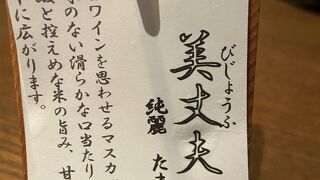 びじょうふ
美丈夫
純麗 たま
ワインを思わせるマスカ
のない滑らかな口当たり
と控えめな米の旨み 甘
に広がります。